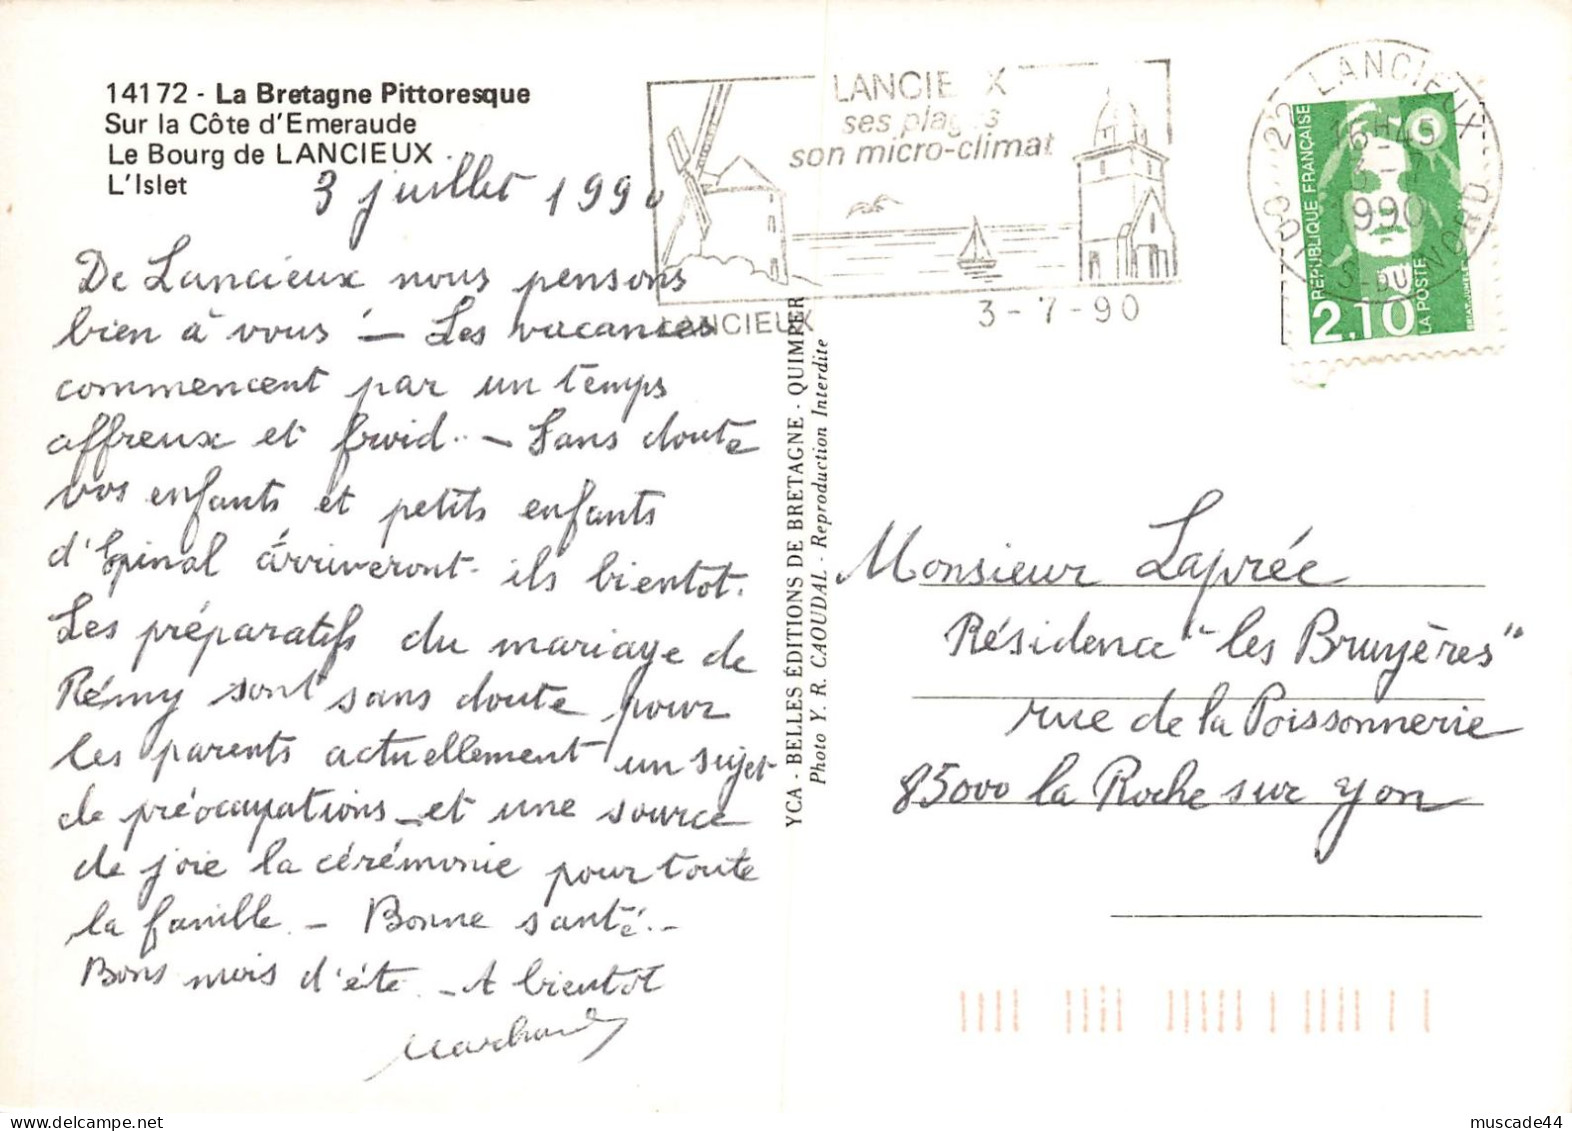 14172 - La Bretagne Pittoresque
Sur la Côte d'Emeraude
Le Bourg de LANCIEUX
L'Islet
3 juillet 1990
De Lancieux nous pensons
bien à vous - Les vacances
commencent par un temps
affreux et froid.. - Sans doute
vos enfants et petits enfants
d'Epinal arriveront-ils bientot.
Les préparatifs du mariage de
Rémy sont sans doute pour
les parents actuellement un sujet
de préocupations - et une source
de joie la cérémonie pour toute
la famille. - Bonne santé. -
Bons mois d'éte. - A bientôt
Marchand
YCA - BELLES ÉDITIONS DE BRETAGNE - QUIMPER
Photo Y. R. CAOUDAL - Reproduction Interdite
LANCIEUX
ses plages
son micro-climat
LANCIEUX
3-7-90
22 LANCIEUX
16H45
3-7
1990
COTES-DU-NORD
RÉPUBLIQUE FRANÇAISE
2,10
LA POSTE
Monsieur Laprée
Résidence "les Bruyères"
rue de la Poissonnerie
85000 la Roche sur Yon
muscade44